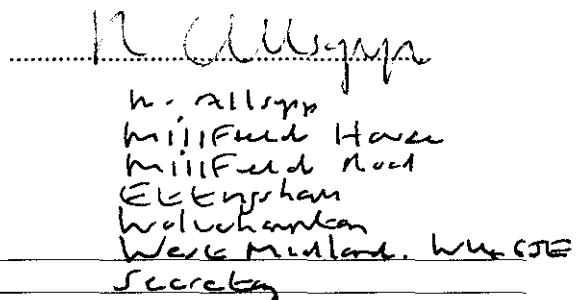 N. Allsopp
Millfield House
Millfield Road
Ettingshall
Wolverhampton
West Midland. WV4 6JE
Secretary